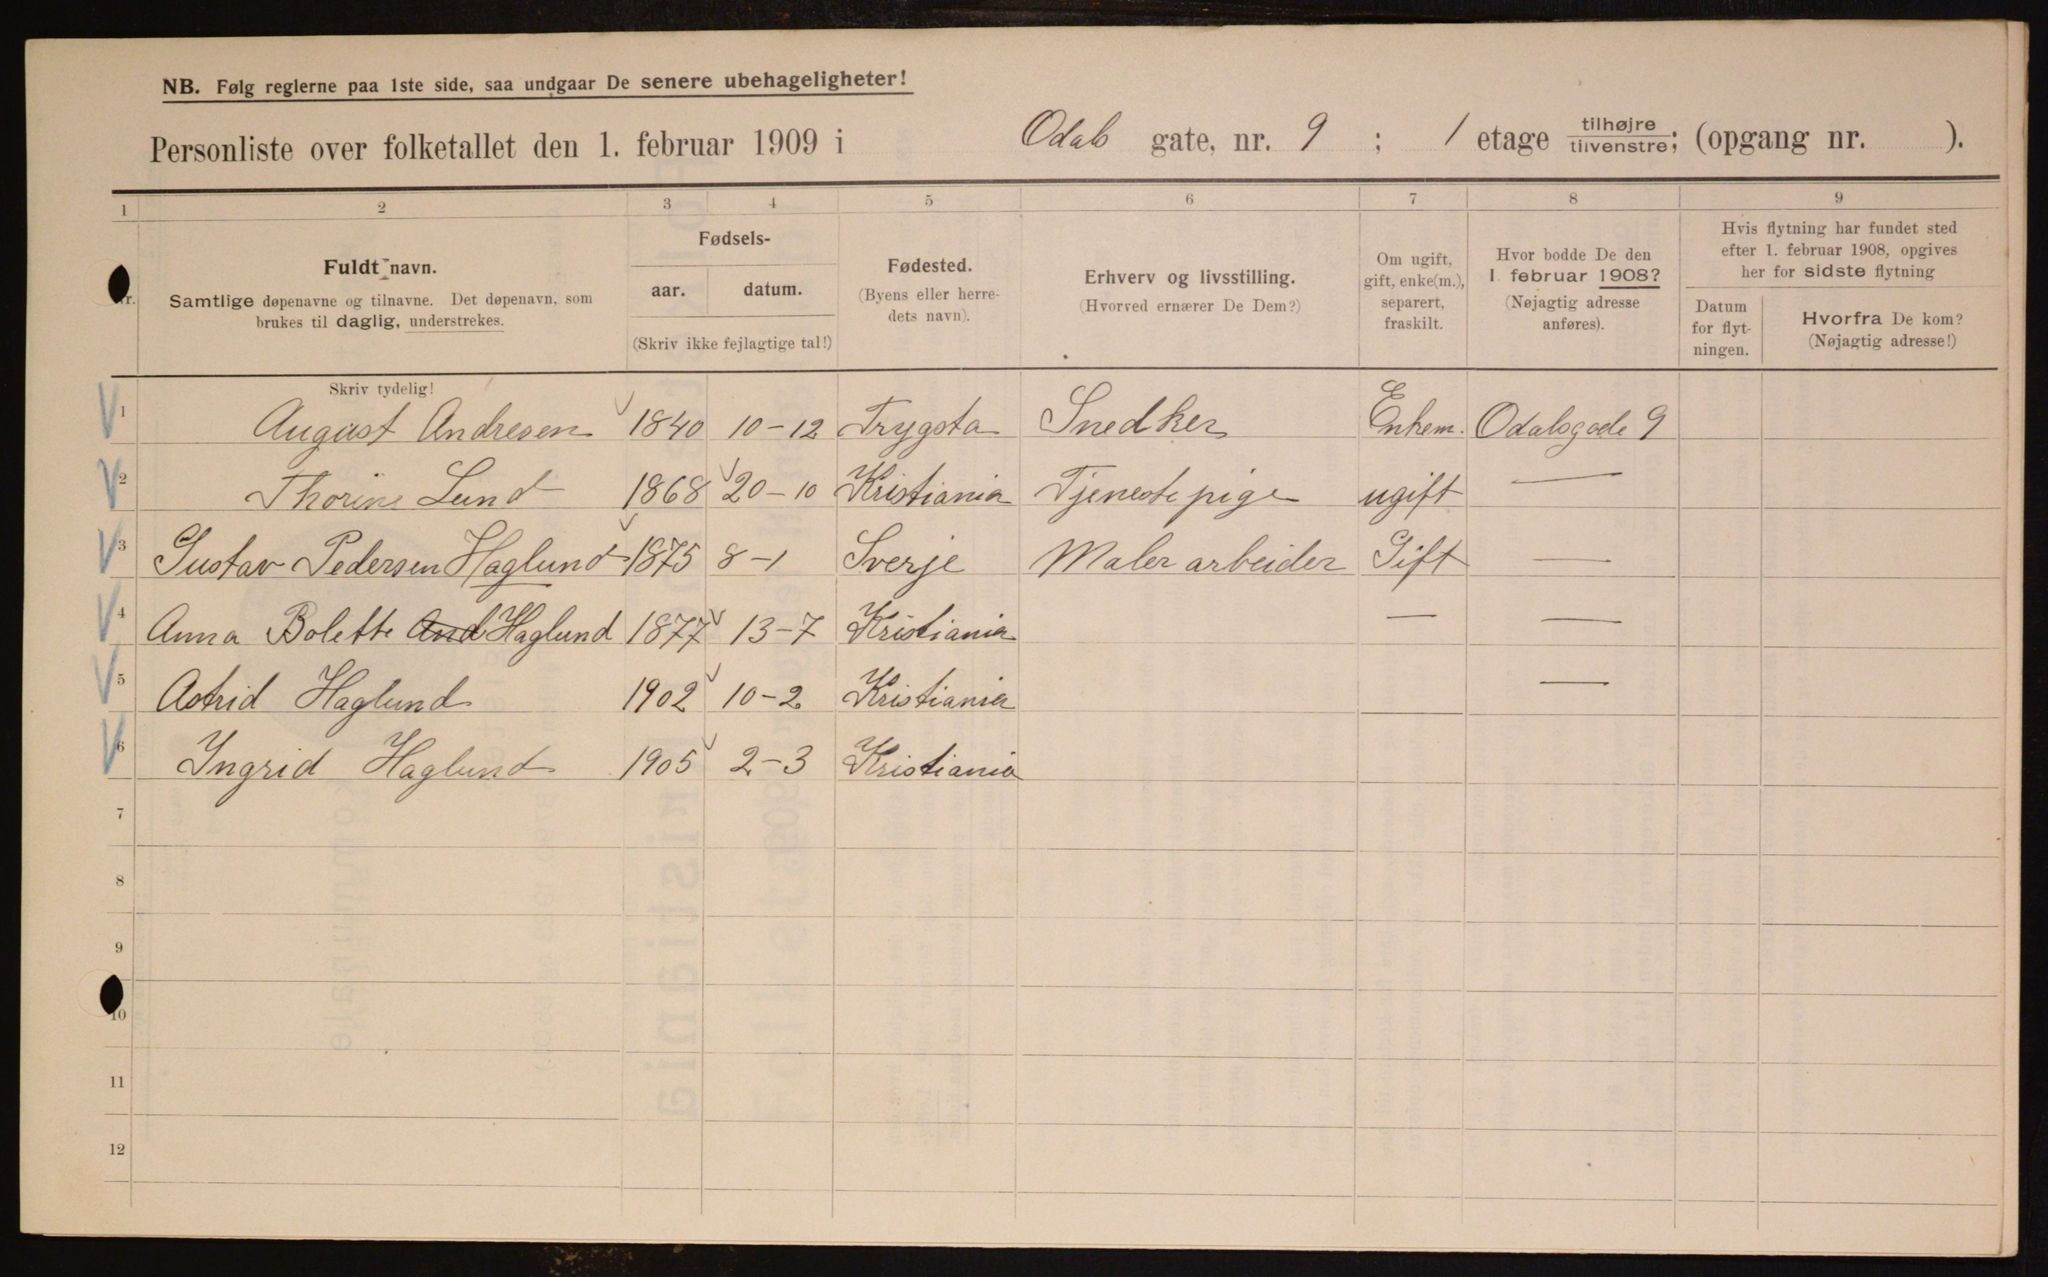 NB. Følg reglerne paa 1ste side, saa undgaar De senere ubehageligheter!
Personliste over folketallet den 1. februar 1909 i Odals gate, nr. 9 ; 1 etage tilhøjre / tilvenstre; (opgang nr. ).
1 2 3 4 5 6 7 8 9
Nr.
Fuldt navn.
Samtlige døpenavne og tilnavne. Det døpenavn, som
brukes til daglig, understrekes.
Skriv tydelig!
Fødsels-
aar. datum.
(Skriv ikke fejlagtige tal!)
Fødested.
(Byens eller herre-
dets navn).
Erhverv og livsstilling.
(Hvorved ernærer De Dem?)
Om ugift,
gift, enke(m.),
separert,
fraskilt.
Hvor bodde De den
1. februar 1908?
(Nøjagtig adresse
anføres).
Hvis flytning har fundet sted
efter 1. februar 1908, opgives
her for sidste flytning
Datum
for flyt-
ningen.
Hvorfra De kom?
(Nøjagtig adresse!)
1 August Andresen 1840 10-12 Trygsta Snedker Enkem. Odalsgade 9
2 Thorine Lund 1868 20-10 Kristiania Tjenestepige ugift —
3 Gustav Pedersen Haglund 1875 8-1 Sverje Maler arbeider Gift —
4 Anna Bolette And Haglund 1877 13-7 Kristiania — —
5 Astrid Haglund 1902 10-2 Kristiania —
6 Ingrid Haglund 1905 2-3 Kristiania
7
8
9
10
11
12